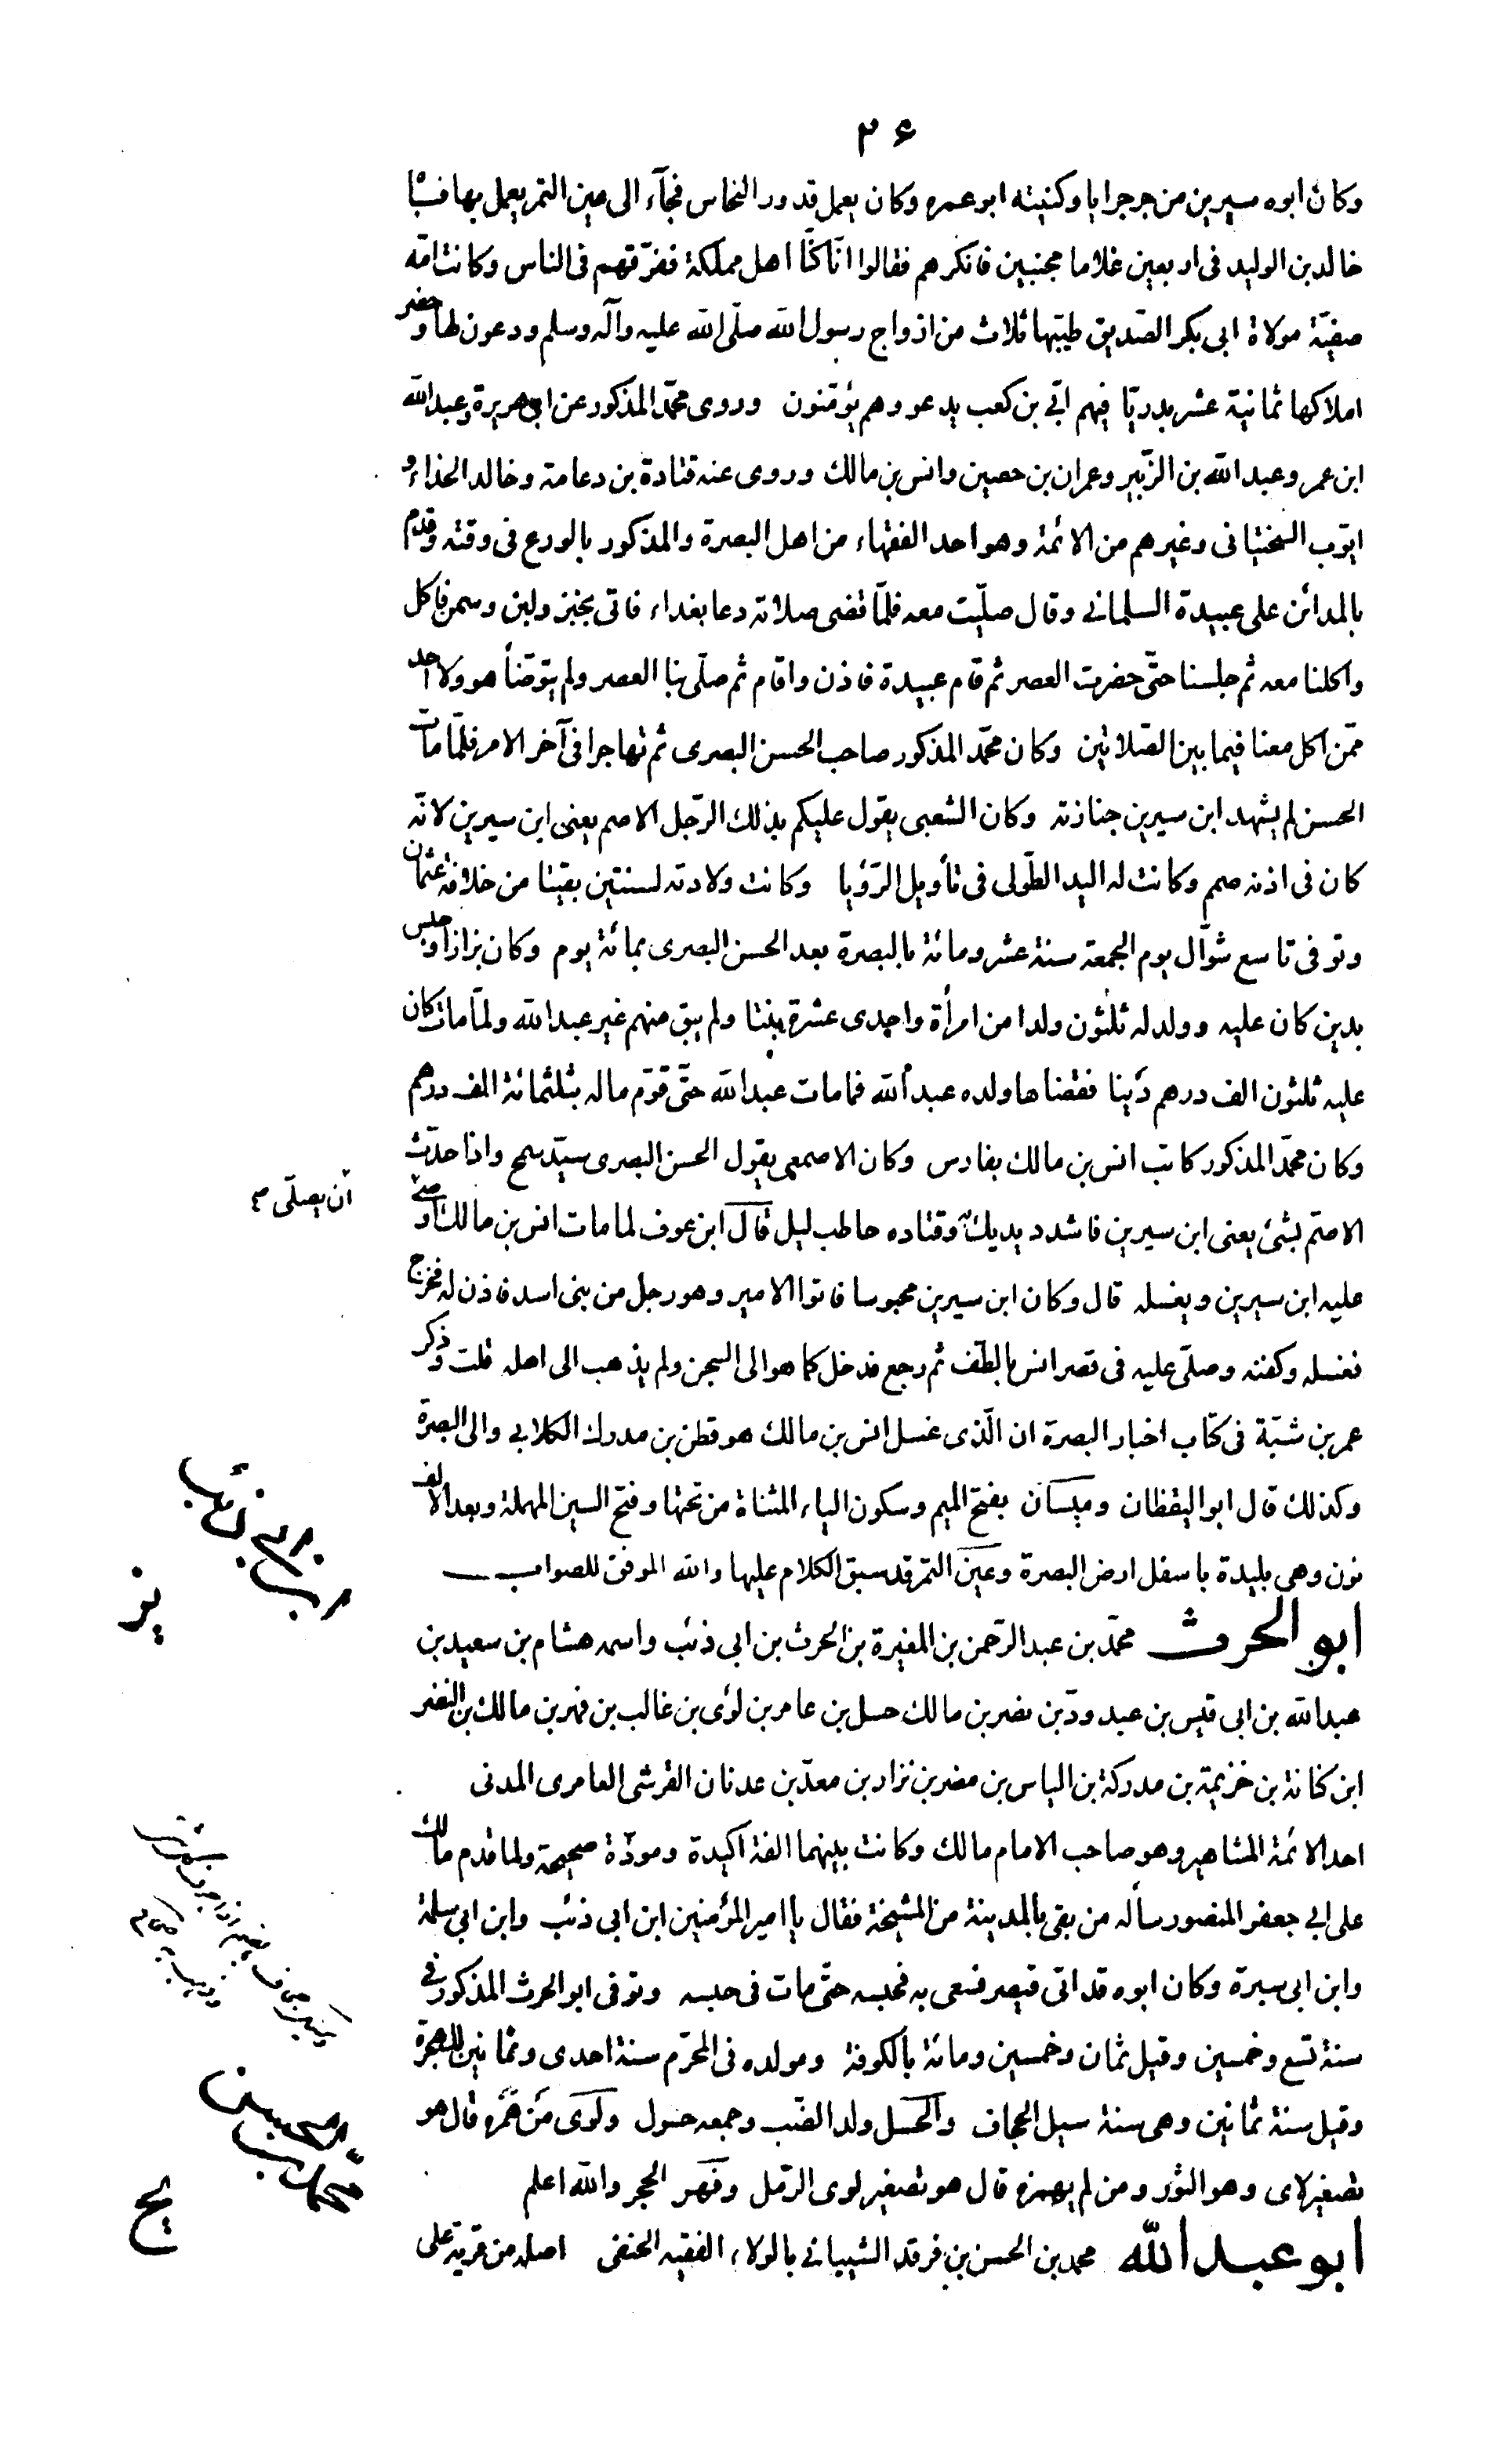 ٢۶
وكان ابوه سيرين من جرجرايا وكنيته ابو عمره وكان يعمل قدور النحاس فجآء الى عين التمر يعمل بها فسبا
خالد بن الوليد فى اربعين غلاما مجنبين فانكرهم فقالوا انّا كنّا اهل مملكة ففرّقهم فى الناس وكانت امّه
صفيّة مولاة ابى بكر الصّديق طيّبها ثلاث من ازواج رسول الله صلّى الله عليه وآله وسلم ودعون لها وحضر
املاكها ثمانية عشر بدريّا فيهم ابّى بن كعب يدعو وهم يؤمّنون وروى محمّد المذكور عن ابى هريرة وعبد الله
ابن عمر وعبد الله بن الزّبير وعمران بن حصين وانس بن مالك وروى عنه قتادة بن دعامة وخالد الحذاء و
ايوّب السختيانى وغيرهم من الائمة وهو احد الفقهاء من اهل البصرة والمذكور بالورع فى وقته وقدم
بالمدائن على عبيدة السلمانى وقال صلّيت معه فلمّا قضى صلاته دعا بغداء فاتى بخبز ولبن وسمن فاكل
واكلنا معه ثم جلسنا حتّى حضرت العصر ثم قام عبيدة فاذن واقام ثم صلّى بنا العصر ولم يتوّضأ هو ولا احد
ممّن اكل معنا فيما بين الصّلاتين وكان محمّد المذكور صاحب الحسن البصرى ثم تهاجرا فى آخر الامر فلمّا مات
الحسن لم يشهد ابن سيرين جنازته وكان الشعبى يقول عليكم بذلك الرّجل الاصم يعنى ابن سيرين لانّه
كان فى اذنه صمم وكانت له اليد الطّولى فى تأويل الرّؤيا وكانت ولادته لسنتين بقيتا من خلافة عثمان
وتوفى تاسع شوّال يوم الجمعة سنة عشر ومائة بالبصرة بعد الحسن البصرى بمائة يوم وكان بزازا وحبس
بدين كان عليه وولد له ثلثون ولدا من امرأة واحدى عشرة بنتا ولم يبق منهم غير عبد الله ولمّا مات كان
عليه ثلثون الف درهم دَينا فقضاها ولده عبد الله فما مات عبد الله حتّى قوّم ماله بثلثمائة الف درهم
وكان محمّد المذكور كاتب انس بن مالك بفارس وكان الاصمعى يقول الحسن البصرى سيّد سمح واذا حدّث
الاصمّ بشئ يعنى ابن سيرين فاشدد يديك وقتاده حاطب ليل قال ابن عوف لما مات انس بن مالك اوصى
أن يصلّى صح
عليه ابن سيرين ويغسله قال وكان ابن سيرين محبوسا فاتوا الامير وهو رجل من بنى اسد فاذن له فخرج
فغسله وكفنه وصلّى عليه فى قصر انس بالطّف ثم رجع فدخل كما هو الى السجن ولم يذهب الى اهله قلت وذكر
عمر بن شبّة فى كتاب اخبار البصرة ان الّذى غسل انس بن مالك هو قطن بن مدرك الكلابى والى البصرة
وكذلك قال ابو اليقظان وميسان بفتح الميم وسكون الياء المثناة من تحتها وفتح السين المهملة وبعد الالف
نون وهى بليدة باسفل ارض البصرة وعين التمر قد سبق الكلام عليها والله الموفق للصواب
ابن ابى ذئب
يز
ابو الحرث محمّد بن عبد الرّحمن بن المغيرة بن الحرث بن ابى ذئب واسمه هشام بن سعيد بن
عبد الله بن ابى قيس بن عبد ودّ بن نصر بن مالك حسل بن عامر بن لؤى بن غالب بن فهر بن مالك بن النضر
ابن كنانة بن خزيمة بن مدركة بن الياس بن مضر بن نزار بن معدّ بن عدنان القرشى العامرى المدنى
احد الائمة المشاهير وهو صاحب الامام مالك وكانت بينهما الفة اكيدة ومودّة صحيحة ولما قدم مالك
على ابى جعفر المنصور سأله من بقى بالمدينة من المشيخة فقال يا امير المؤمنين ابن ابى ذئب وابن ابى سلمة
وابن ابى سبرة وكان ابوه قد اتى قيصر فسعى به فحبسه حتّى مات فى حبسه وتوفى ابو الحرث المذكور فى
سنة تسع وخمسين وقيل ثمان وخمسين ومائة بالكوفة ومولده فى المحرّم سنة احدى وثمانين للهجرة
وقيل سنة ثمانين وهى سنة سيل الجحاف والحسل ولد الضّب وجمعه حسول ولؤى من همزه قال هو
تصغير لاى وهو الثور ومن لم يهمزه قال هو تصغير لوى الرّمل وفهر الحجر والله اعلم
محمّد بن الحسن
يح
ابو عبد الله محمد بن الحسن بن فرقد الشيبانى بالولاء الفقيه الحنفى اصله من قرية على